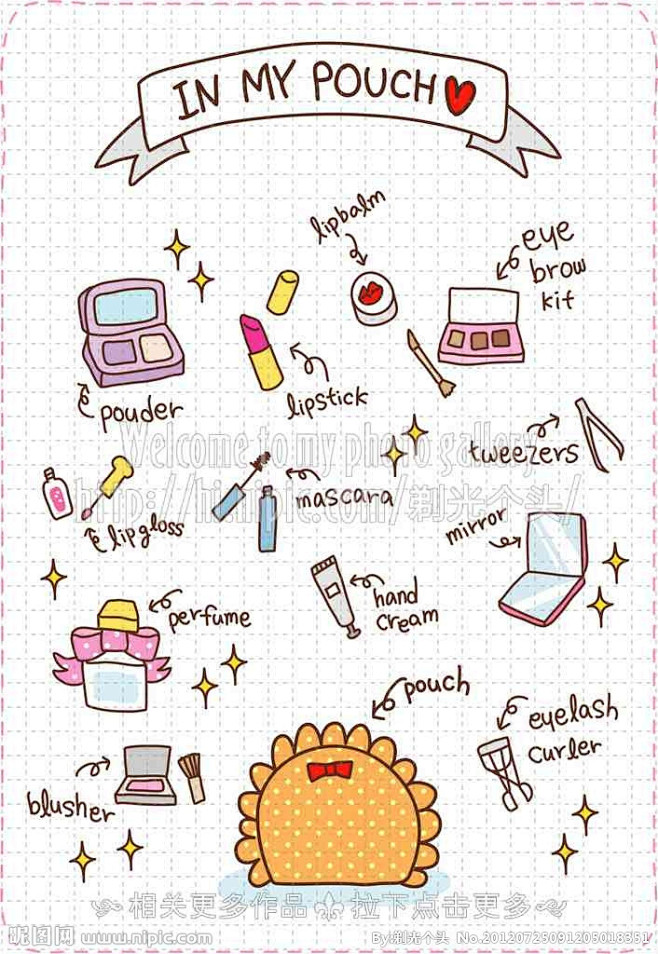 IN MY POUCH
lipbalm
eye
brow
kit
pouder
lipstick
tweezers
Welcome to my photo gallery
http://hi.nipic.com/剃光个头/
lipgloss
mascara
mirror
perfume
hand
cream
pouch
eyelash
curler
blusher
相关更多作品 拉下点击更多
昵图网 www.nipic.com
By:剃光个头 No.20120725091205018351